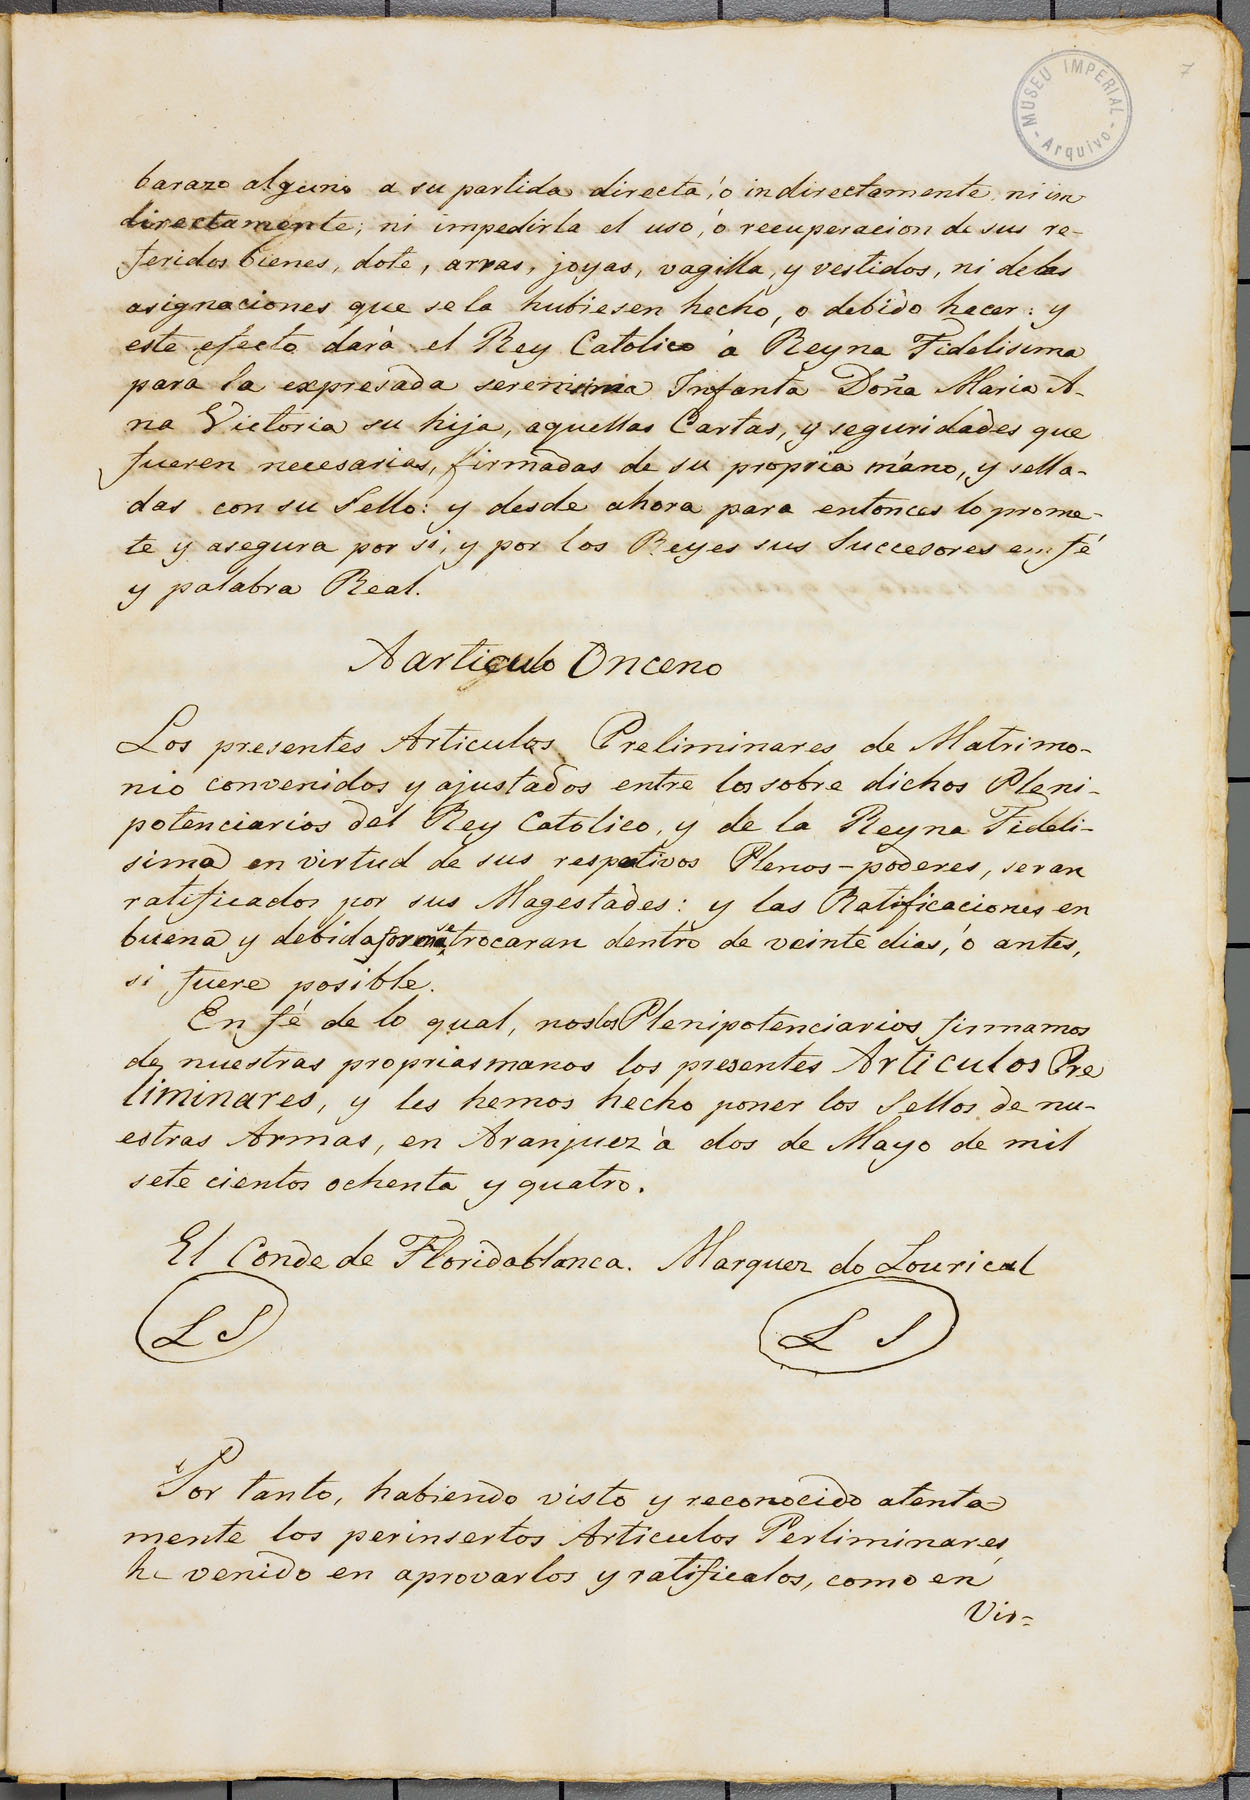 MUSEU IMPERIAL
- Arquivo -
barazo alguno a su partida directa, ó indirectamente ni in
directamente; ni impedirla el uso, ó recuperacion de sus re-
feridos bienes, dote, arras, joyas, vagilla, y vestidos, ni de las
asignaciones que se la hubiesen hecho, o debido hacer: y
este efecto dará el Rey Catolico á Reyna Fidelisima
para la expresada serenisima Infanta Doña Maria A-
na Victoria su hija, aquellas Cartas, y seguridades que
fueren necesarias, firmadas de su propria mano, y sella-
das con su Sello: y desde ahora para entonces lo prome-
te y asegura por si, y por los Reyes sus Succesores em fé
y palabra Real.
Aarticulo Onceno
Los presentes Articulos Preliminares de Matrimo-
nio convenidos y ajustados entre los sobre dichos Pleni-
potenciarios del Rey Catolico, y de la Reyna Fideli-
sima en virtud de sus respetivos Plenos-poderes, seran
ratificados por sus Magestades: y las Ratificaciones en
buena y debida forma se trocaran dentro de veinte dias, ó antes,
si fuere posible.
En fé de lo qual, nos los Plenipotenciarios firmamos
de nuestras proprias manos los presentes Articulos Pre
liminares, y les hemos hecho poner los Sellos de nu-
estras Armas, en Aranjuez à dos de Mayo de mil
sete cientos ochenta y quatro.
El Conde de Floridablanca. Marquez do Lourical
L S L S
Por tanto, habiendo visto y reconocido atenta=
mente los perinsertos Articulos Perliminares,
he venido en aprovarlos y ratificalos, como en
Vir=